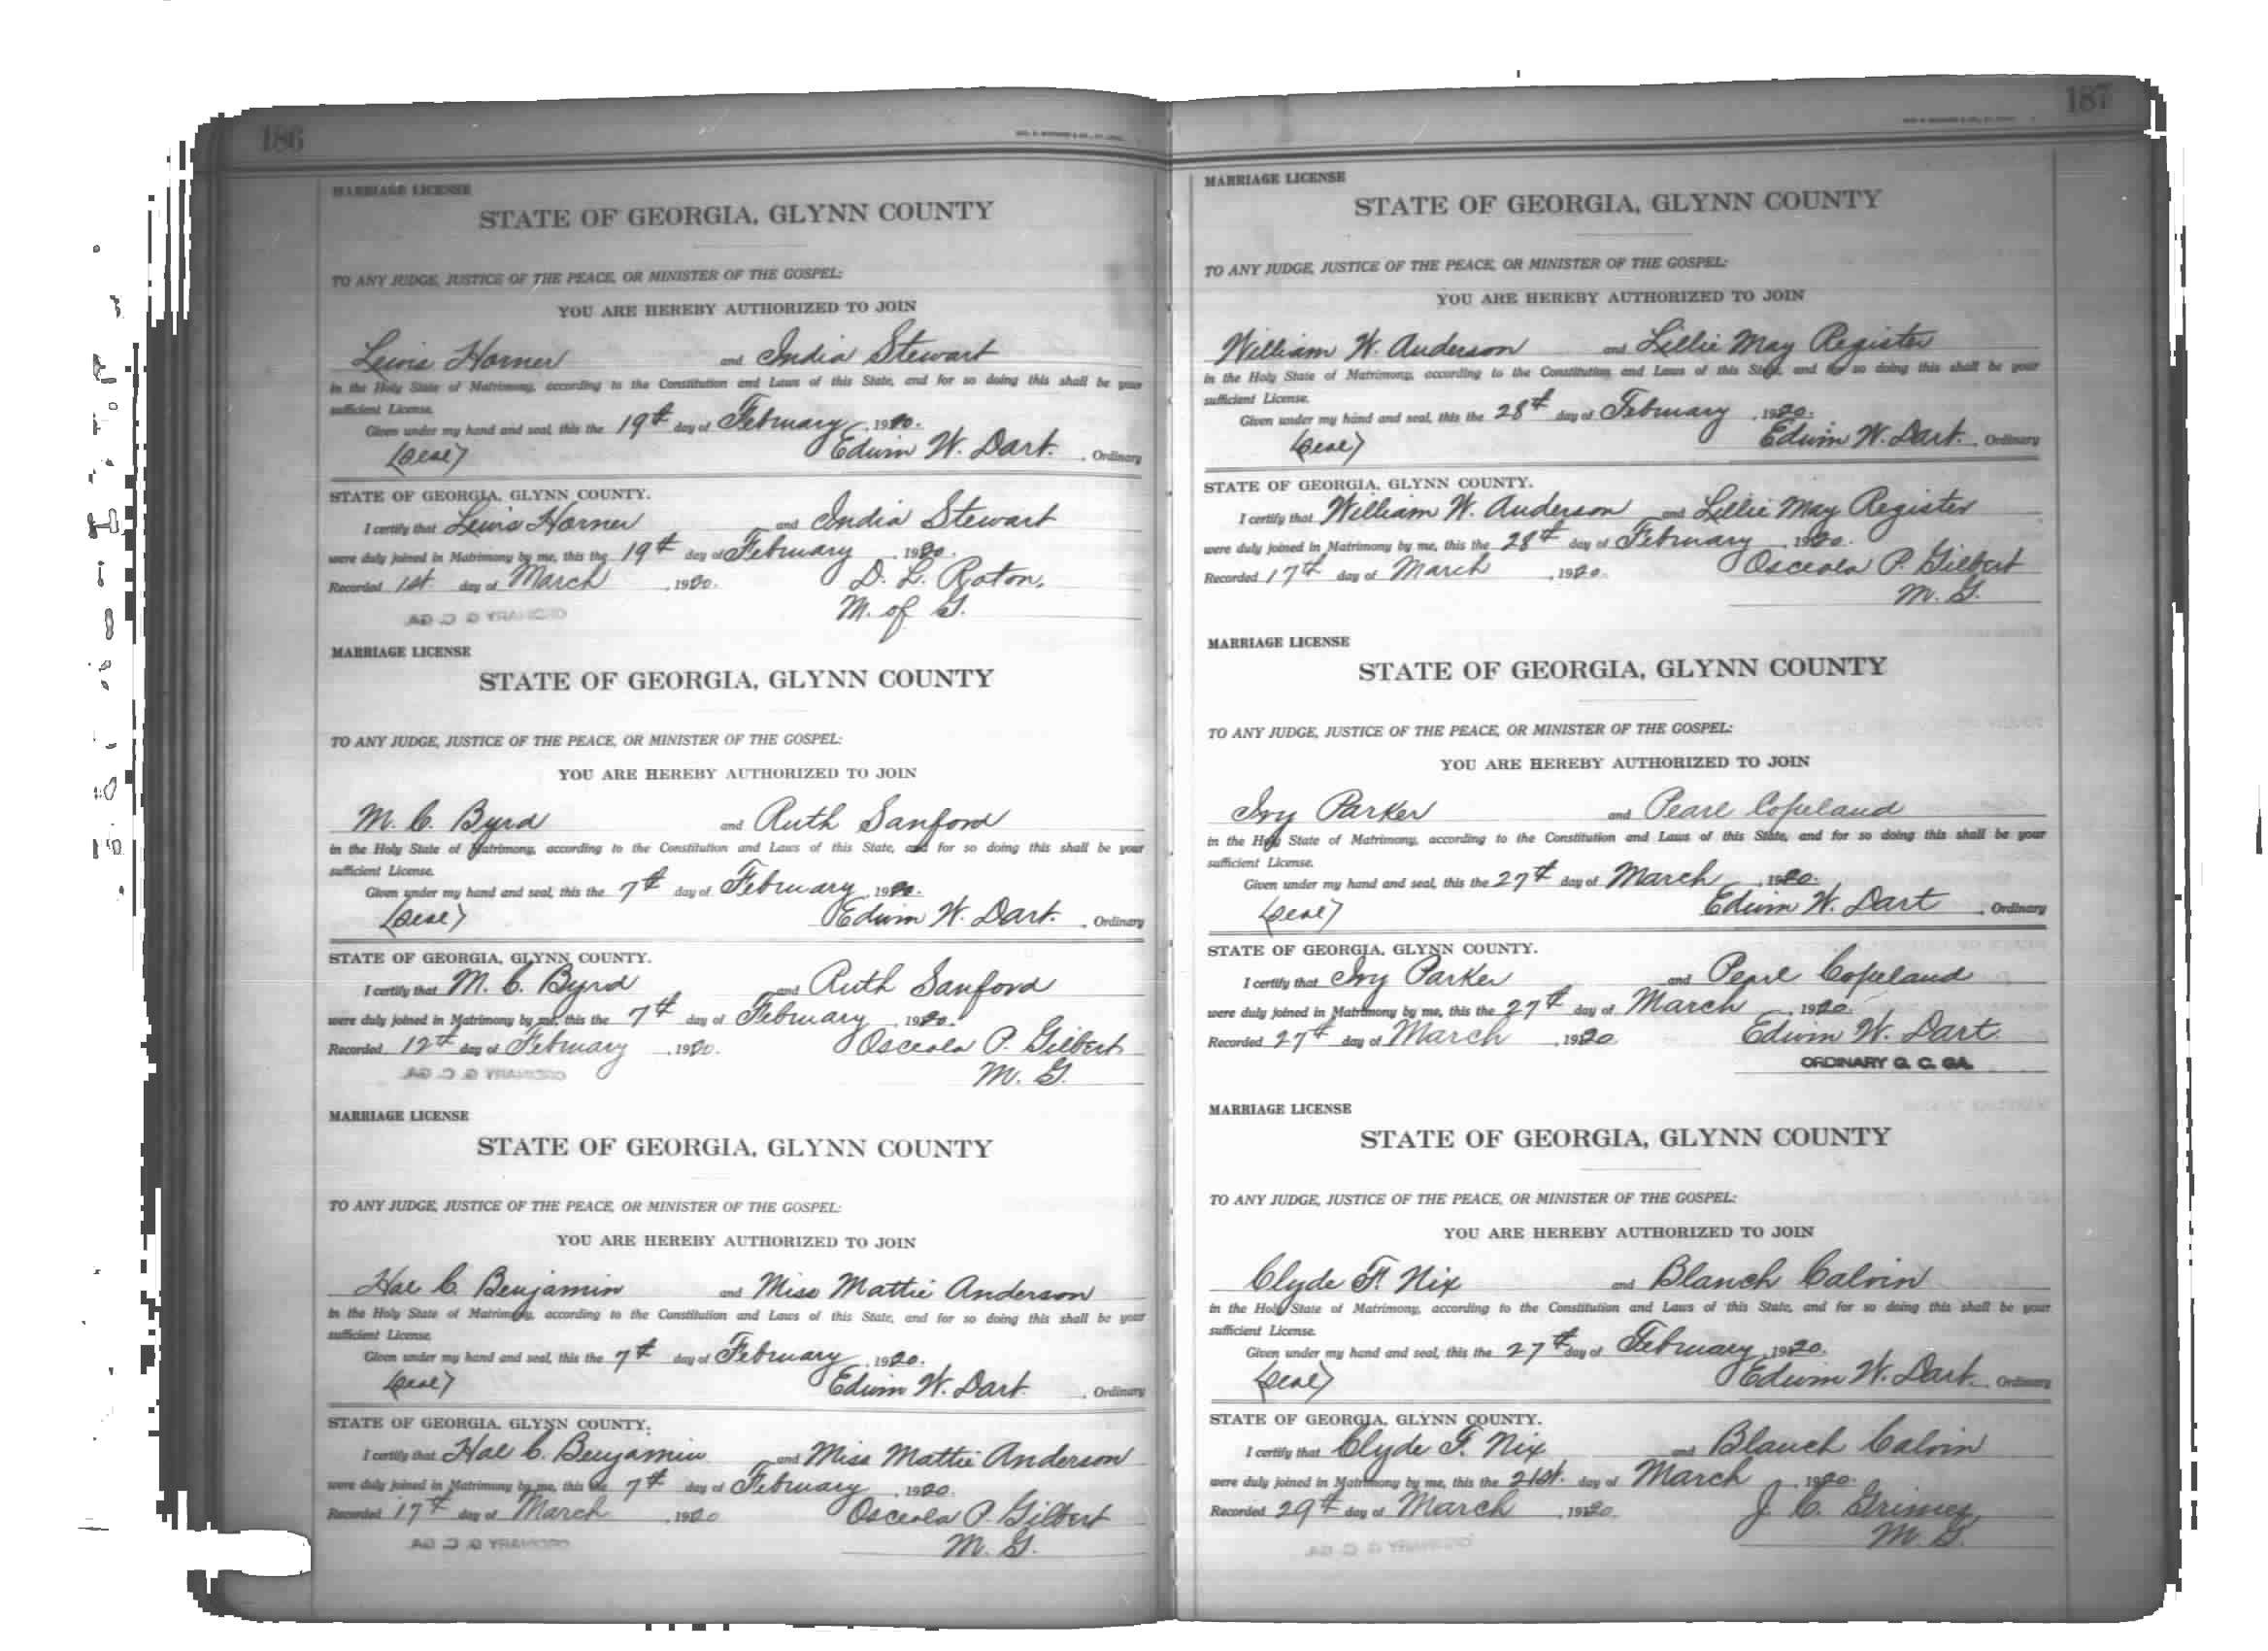 186
MARRIAGE LICENSE
STATE OF GEORGIA, GLYNN COUNTY
TO ANY JUDGE, JUSTICE OF THE PEACE, OR MINISTER OF THE GOSPEL:
YOU ARE HEREBY AUTHORIZED TO JOIN
Lewis Horner and India Stewart
in the Holy State of Matrimony, according to the Constitution and Laws of this State, and for so doing this shall be your
sufficient License.
Given under my hand and seal, this the 19th day of February, 1920.
(Seal) Edwin W. Dart. , Ordinary
STATE OF GEORGIA, GLYNN COUNTY.
I certify that Lewis Horner and India Stewart
were duly joined in Matrimony by me, this the 19th day of February, 1920.
Recorded 1st. day of March, 1920. D. L.
M. of G.
ORDINARY G. C. GA.
MARRIAGE LICENSE
STATE OF GEORGIA, GLYNN COUNTY
TO ANY JUDGE, JUSTICE OF THE PEACE, OR MINISTER OF THE GOSPEL:
YOU ARE HEREBY AUTHORIZED TO JOIN
M. C. Byrd and Ruth Sanford
in the Holy State of Matrimony, according to the Constitution and Laws of this State, and for so doing this shall be your
sufficient License.
Given under my hand and seal, this the 7th day of February, 1920.
(Seal) Edwin W. Dart. , Ordinary
STATE OF GEORGIA, GLYNN COUNTY.
I certify that M. C. Byrd and Ruth Sanford
were duly joined in Matrimony by me, this the 7th day of February, 1920.
Recorded 12th day of February, 1920. Osceola P. Gilbert
M. G.
ORDINARY G. C. GA.
MARRIAGE LICENSE
STATE OF GEORGIA, GLYNN COUNTY
TO ANY JUDGE, JUSTICE OF THE PEACE, OR MINISTER OF THE GOSPEL:
YOU ARE HEREBY AUTHORIZED TO JOIN
Hal C. Benjamin and Miss Mattie Anderson
in the Holy State of Matrimony, according to the Constitution and Laws of this State, and for so doing this shall be your
sufficient License.
Given under my hand and seal, this the 7th day of February, 1920.
(Seal) Edwin W. Dart. , Ordinary
STATE OF GEORGIA, GLYNN COUNTY.
I certify that Hal C. Benjamin and Miss Mattie Anderson
were duly joined in Matrimony by me, this the 7th day of February, 1920.
Recorded 17th day of March, 1920 Osceola P. Gilbert
M. G.
ORDINARY G. C. GA.
187
MARRIAGE LICENSE
STATE OF GEORGIA, GLYNN COUNTY
TO ANY JUDGE, JUSTICE OF THE PEACE, OR MINISTER OF THE GOSPEL:
YOU ARE HEREBY AUTHORIZED TO JOIN
William W. Anderson and Lillie May Register
in the Holy State of Matrimony, according to the Constitution and Laws of this State, and for so doing this shall be your
sufficient License.
Given under my hand and seal, this the 28th day of February, 1920.
(Seal) Edwin W. Dart. , Ordinary
STATE OF GEORGIA, GLYNN COUNTY.
I certify that William W. Anderson and Lillie May Register
were duly joined in Matrimony by me, this the 28th day of February, 1920.
Recorded 17th day of March, 1920. Osceola P. Gilbert
M. G.
MARRIAGE LICENSE
STATE OF GEORGIA, GLYNN COUNTY
TO ANY JUDGE, JUSTICE OF THE PEACE, OR MINISTER OF THE GOSPEL:
YOU ARE HEREBY AUTHORIZED TO JOIN
Ivy Parker and Pearl Copeland
in the Holy State of Matrimony, according to the Constitution and Laws of this State, and for so doing this shall be your
sufficient License.
Given under my hand and seal, this the 27th day of March, 1920.
(Seal) Edwin W. Dart , Ordinary
STATE OF GEORGIA, GLYNN COUNTY.
I certify that Ivy Parker and Pearl Copeland
were duly joined in Matrimony by me, this the 27th day of March, 1920.
Recorded 27th day of March, 1920 Edwin W. Dart.
ORDINARY G. C. GA.
MARRIAGE LICENSE
STATE OF GEORGIA, GLYNN COUNTY
TO ANY JUDGE, JUSTICE OF THE PEACE, OR MINISTER OF THE GOSPEL:
YOU ARE HEREBY AUTHORIZED TO JOIN
Clyde F. Nix and Blanch Calvin
in the Holy State of Matrimony, according to the Constitution and Laws of this State, and for so doing this shall be your
sufficient License.
Given under my hand and seal, this the 27th day of February, 1920.
(Seal) Edwin W. Dart. Ordinary
STATE OF GEORGIA, GLYNN COUNTY.
I certify that Clyde F. Nix and Blanch Calvin
were duly joined in Matrimony by me, this the 21st. day of March, 1920.
Recorded 29th day of March, 1920. J. C. Grimes
M. G.
ORDINARY G. C. GA.